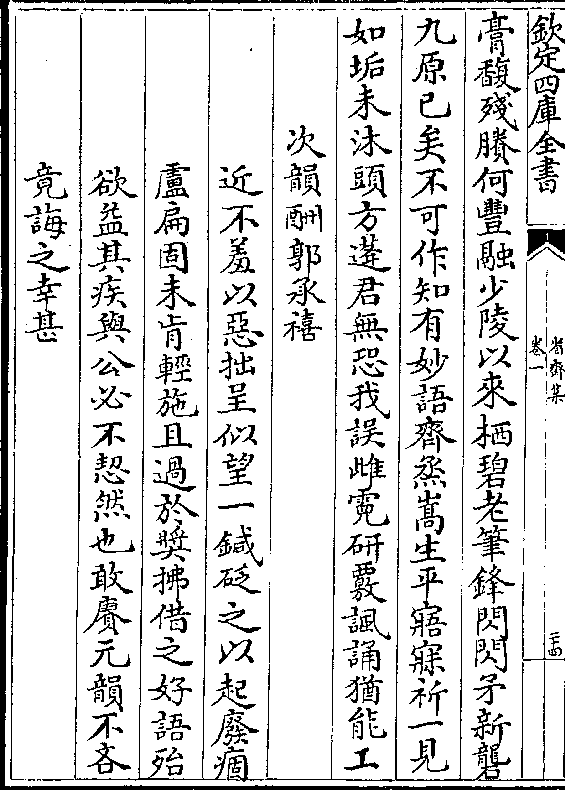 欽定四庫全書
省齋集
卷一
二十四
膏馥殘賸何豐融少陵以來栖碧老筆鋒閃閃矛新礱
九原已矣不可作知有妙語齊烝嵩生平寤寐祈一見
如垢未沐頭方蓬君無恐我誤雌霓研覈諷誦猶能工
次韻酬郭承禧
近不羞以惡拙呈似望一鍼砭之以起廢痼
盧扁固未肯輕施且過於奬拂借之好語殆
欲益其疾與公必不恝然也敢賡元韻不吝
竟誨之幸甚